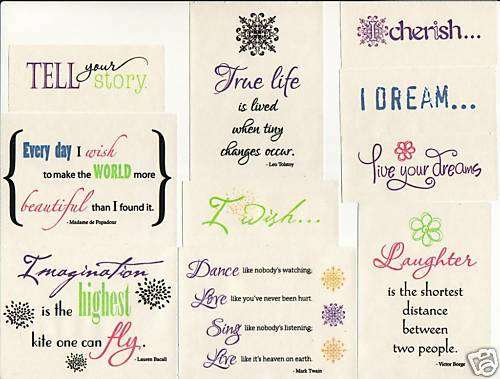 TELL your
story.
Every day I wish
to make the WORLD more
beautiful than I found it.
- Madame de Popadour
Imagination
is the highest
kite one can fly.
- Lauren Bacall
True life
is lived
when tiny
changes occur.
- Leo Tolstoy
I wish...
Dance like nobody's watching,
Love like you've never been hurt.
Sing like nobody's listening;
Live like it's heaven on earth.
- Mark Twain
I cherish...
I DREAM...
live your dreams
Laughter
is the shortest
distance
between
two people.
- Victor Borge